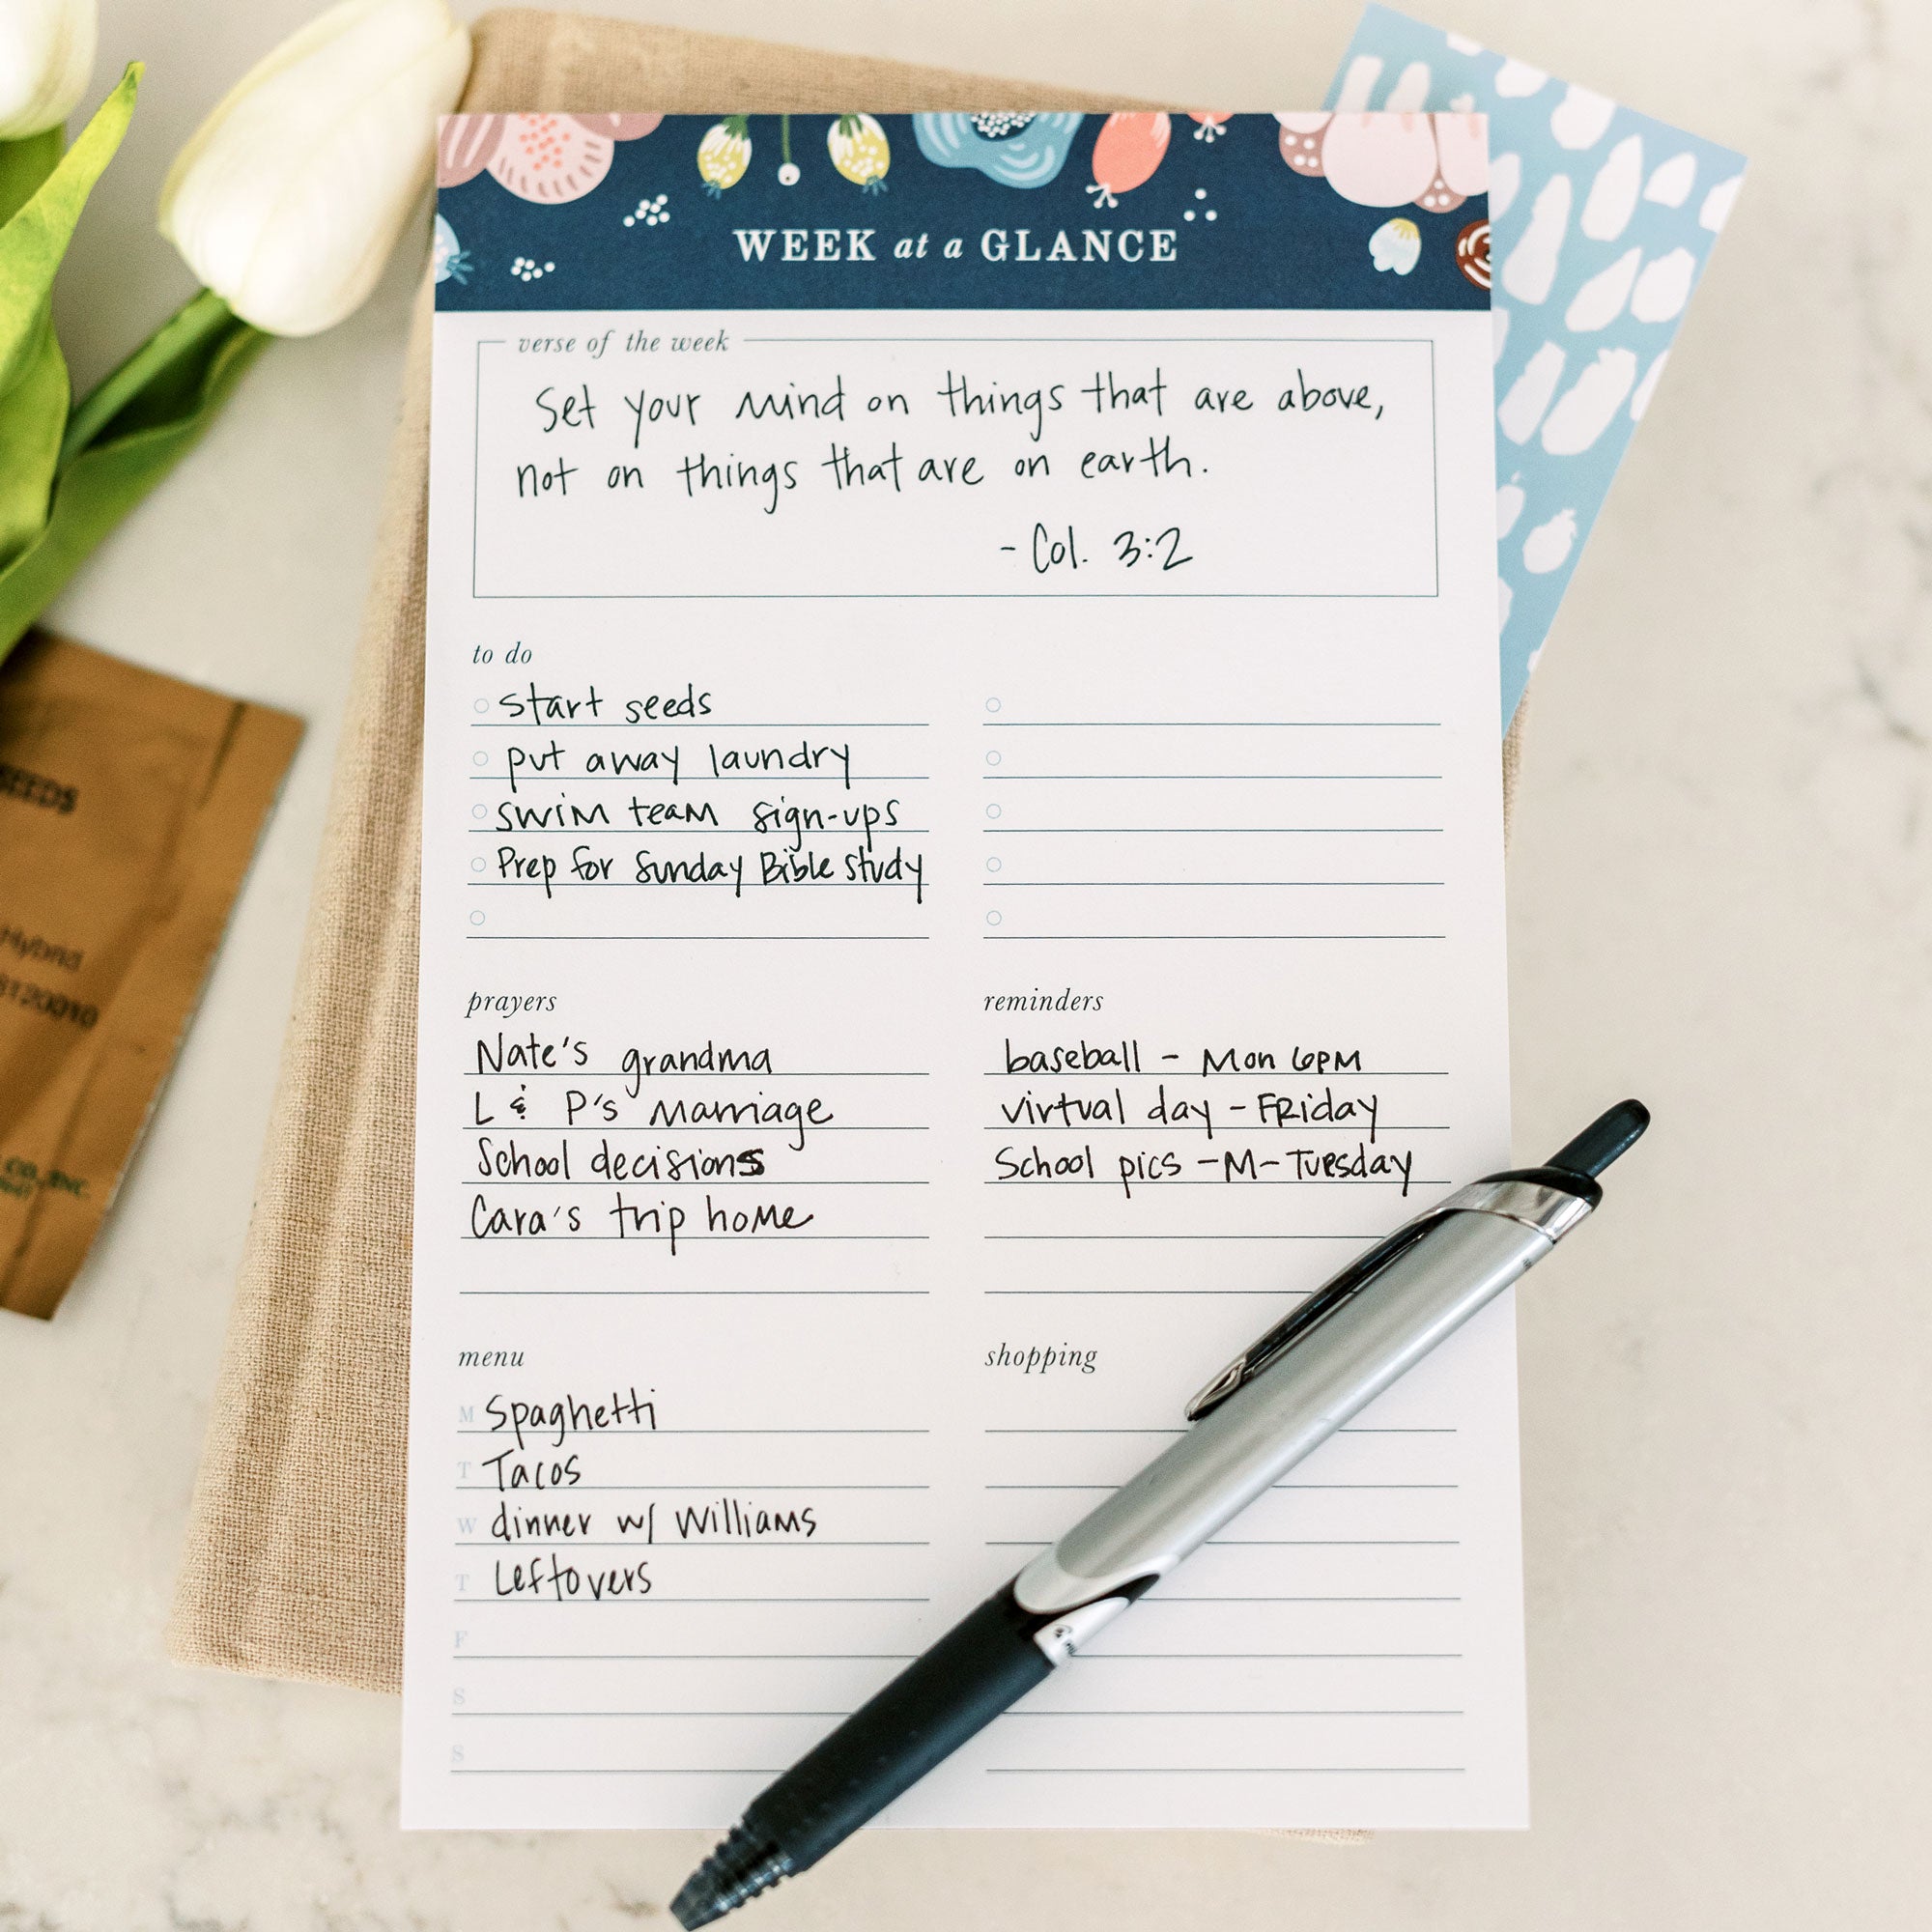 WEEK at a GLANCE
verse of the week
Set your mind on things that are above,
not on things that are on earth.
- Col. 3:2
to do
start seeds
put away laundry
swim team sign-ups
Prep for Sunday Bible study
prayers
Nate's grandma
L & P's marriage
School decisions
Cara's trip home
reminders
baseball - Mon 6PM
virtual day - FRiday
School pics - M - Tuesday
menu
M Spaghetti
T Tacos
W dinner w/ Williams
T Leftovers
F
S
S
shopping
SEEDS
Hybrid
CO., INC.